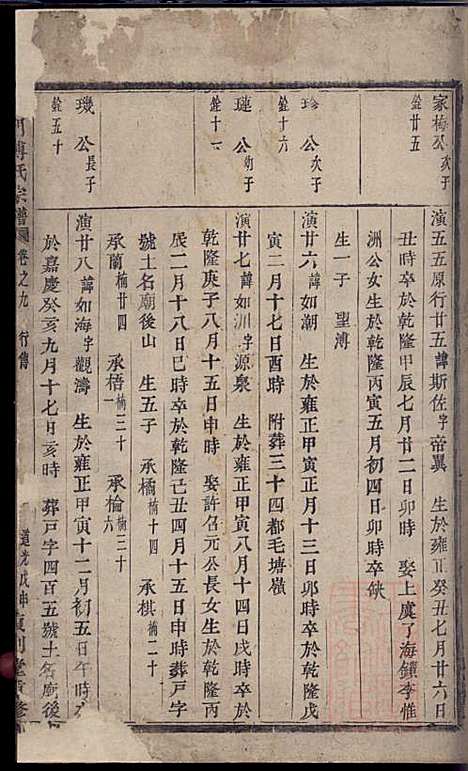 家梅公次子
銓廿五
演五五原行廿五諱斯佐字帝翼 生於雍正癸丑七月廿六日
丑時卒於乾隆甲辰七月廿二日卯時 娶上虞了海鎮李惟
洲公女生於乾隆丙寅五月初四日卯時卒缺
生一子 聖溥
珍公次子
銓十六
演廿六諱如潮 生於雍正甲寅正月十三日卯時卒於乾隆戊
寅二月十七日酉時 附葬三十四都毛塘嶺
璉公幼子
銓十一
演廿七諱如川字源泉 生於雍正甲寅八月十四日戌時卒於
乾隆庚子八月十五日申時 娶許召元公長女生於乾隆
辰二月十八日巳時卒於乾隆己丑四月十五日申時葬戸字
號土名廟後山 生五子 承橘楠十四 承棋楠二十
承蘭楠廿四 承梧楠三十一 承檢楠三十六
璣公長子
銓五十
演廿八諱如海字觀濤 生於雍正甲寅十二月初五日午時
於嘉慶癸亥九月十七日亥時 葬戸字四百五號土名廟後
傅氏宗譜 卷之九 行傳 道光戊申